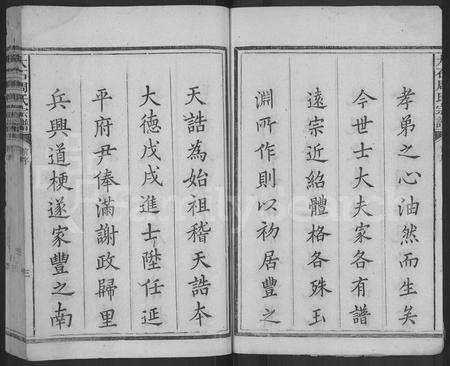 孝弟之心油然而生矣
今世士大夫家各有譜
遠宗近紹體格各殊玉
淵所作則以初居豐之
天誥為始祖稽天誥本
大德戊戌進士陞任延
平府尹俸滿謝政歸里
兵興道梗遂家豐之南